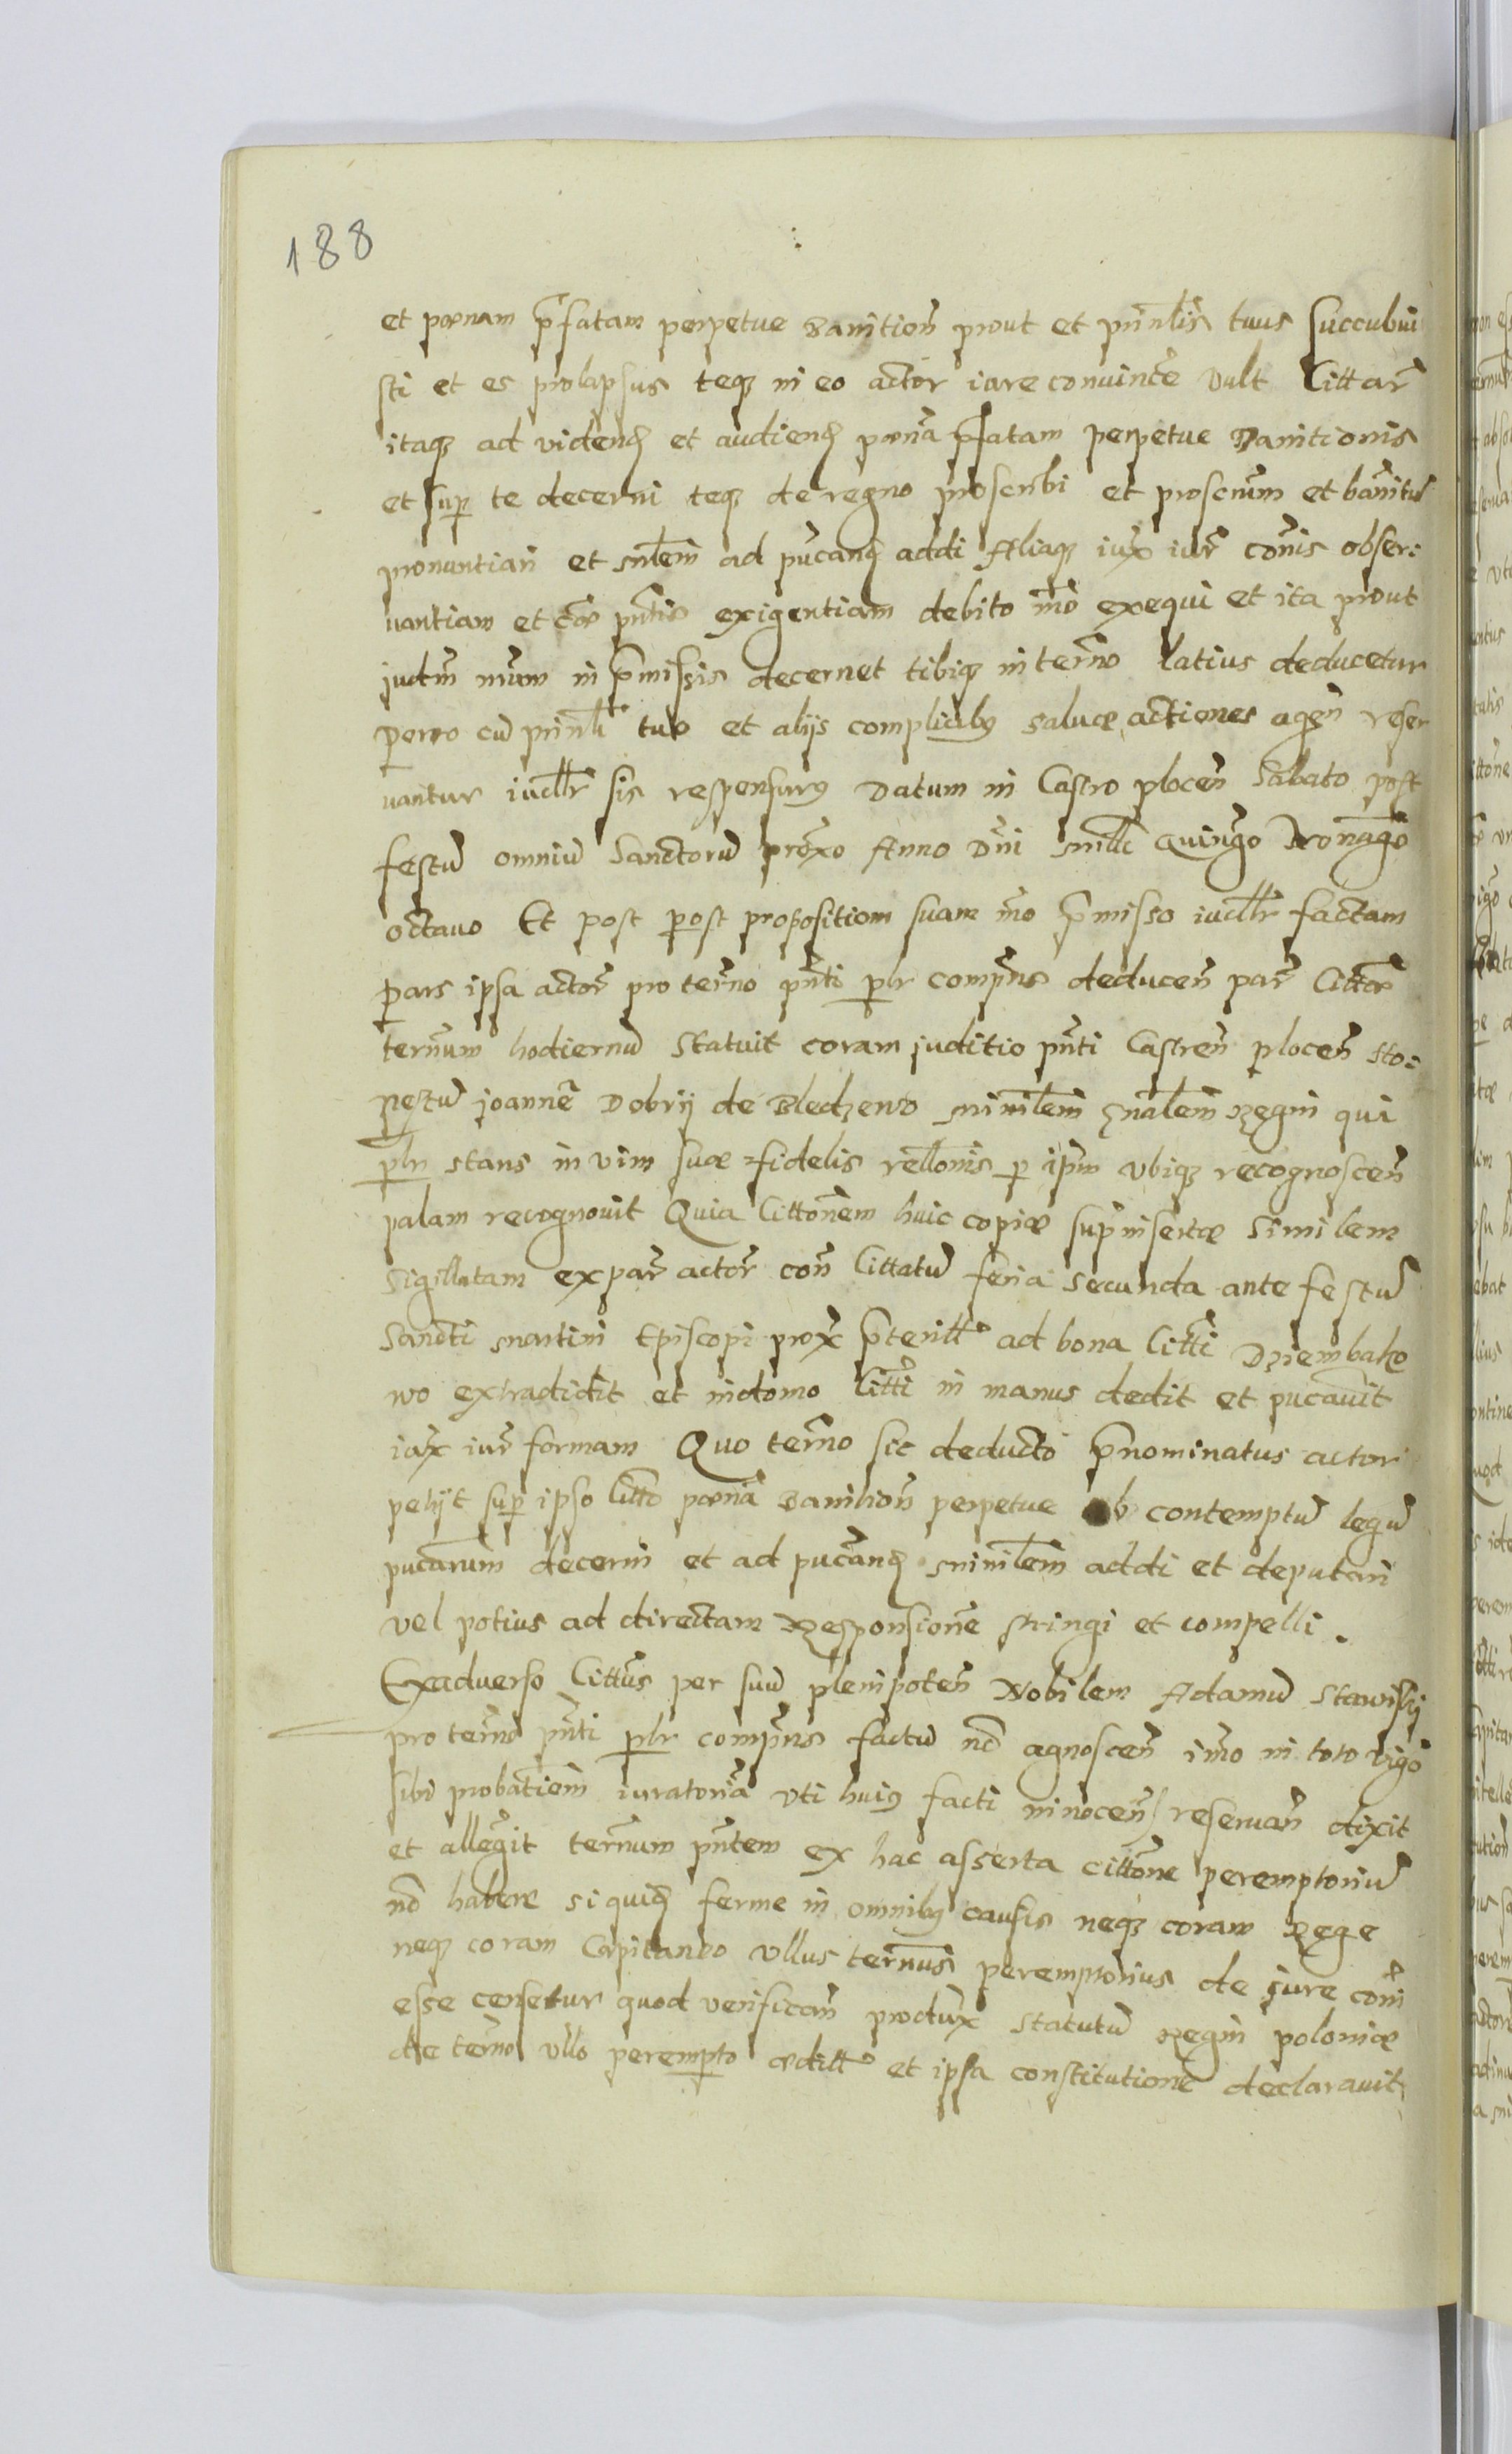 188
et pœnam p̄fatam perpetue Banition̄ prout et prīnlis tuus succubui
sti et es prolapsus teq3 in eo actor iure convincēre vult Cittar̄
itaq3 ad videnđ et audienđ pœnā p̄fatam perpetue Banitionis
et suꝑ te decerni teq3 de regno proscribi et proscrūm et bānitū
pronuntiari et mīnlem ad pūcanđ addi Aliaq3 iux̄ iur̄ cōnis obser:
vantiam et cāē pūtis exigentiam debito mō exequi et ita prout
judīm nrūm in p̄missis decernet tibiq3 in tern̄o latius deducetur
Porro cū prīnli tuo et alijs complicib9 saluæ actiones agēn reser
vantur iudllr̄ sis responsur9 Datum in Castro plocen̄ Sabato post
festū omniū Sanctorū prōxo Anno Dn̄i mīlll Quingō Nonagō
octauo Et post post propositiom suam mō p̄misso iudllr̄ factam
pars ipsa actor̄ pro tern̄o pn̄ti plr comp̄ns deducen̄ par̄ Cittæ
tern̄um hodiernū Statuit coram juditio pn̄ti Castren̄ plocen̄ Ho=
nestū joannē Dobrij de Bledzewo minīlem gn̄alem Regni qui
plr stans in vim suæ fidelis rellōnis ꝑ ip̄m vbiq3 recognoscen̄
palam recognouit Quia Cittōnem huic copiæ suprinsertæ similem
Sigillatam ex par̄ actor̄ con̄ Cittatū feria secunda ante festū
Sancti martini Episcopi prox̄ p̄terillo ad bona Citti Dziembako
wo extradidit et in domo Citti in manus dedit et pūcavit
iux̄ iur̄ formam Quo tern̄o sic deducto p̄nominatus actor
petijt suꝑ ipso Citto pœnā Banition̄ perpetue ob contemptū legū
pūcarum decerni et ad pūcanđ minīlem addi et deputari
vel potius ad directam Responsionē stringi et compelli.
Exadverso Cittūs per suū plenipoten̄ Nobilem Adamū Stawiskij
pro tern̄o pn̄ti plr comp̄ns factū nō agnoscen̄ imō in toto vigō
sibi probatiēm iuratoriā vti hui9 facti innocen̄ reservan̄ dixit
et allēgit tern̄um pn̄tem ex hac asserta cittōne peremptoriū
nō habere siquiđ ferme in omnib9 causis neq3 coram Rege
neq3 coram Capitaneo vllus tern̄us peremptorius de jure cōni
esse censetur quod verifican̄ produx̄ statutū Regni poloniæ
de tern̄o vllo perempto ædillo et ipsa constitutionē declaravit